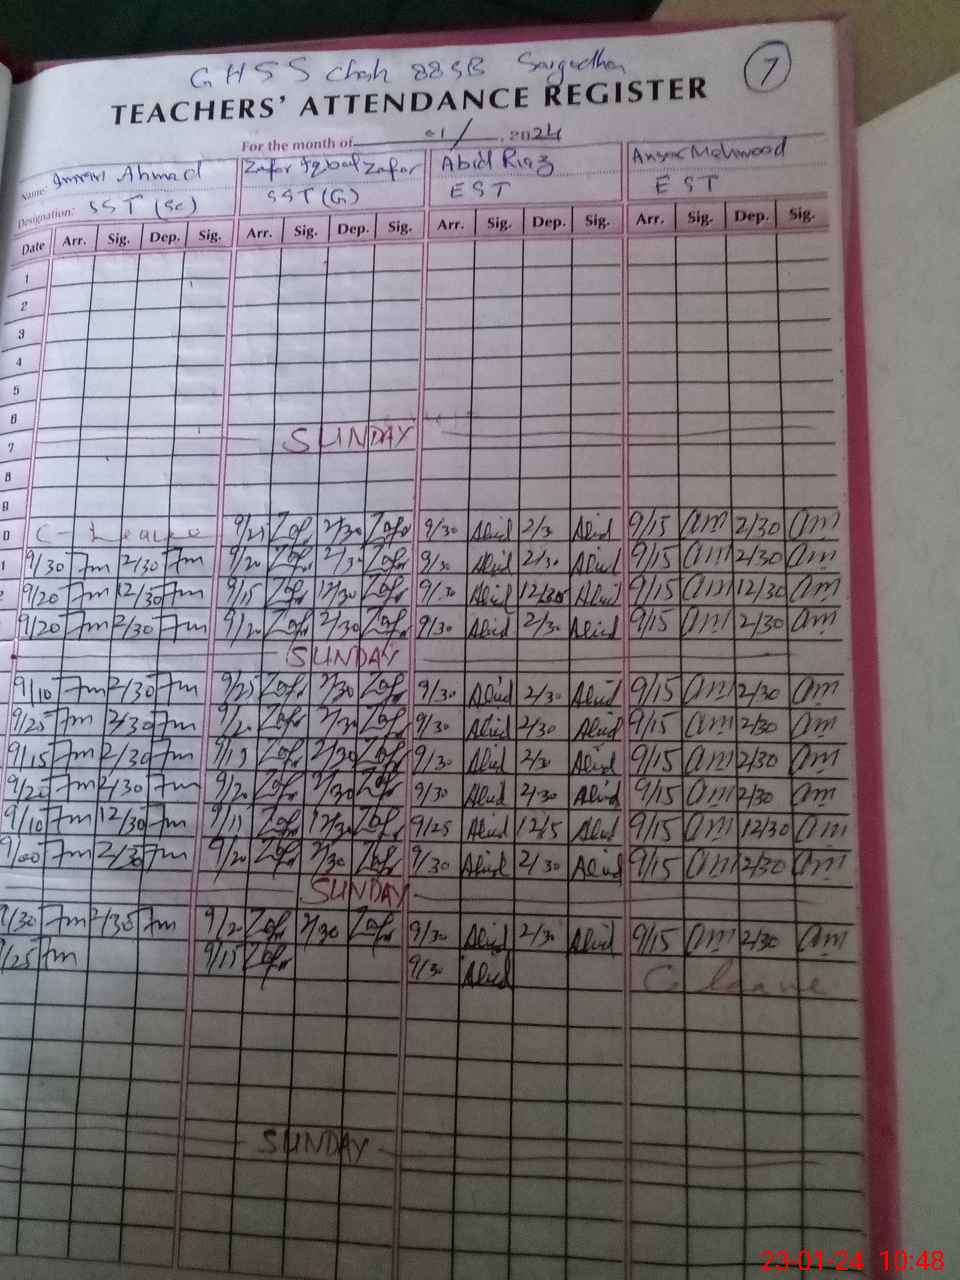 GHSS Chak 88SB Sargodha 7
TEACHERS' ATTENDANCE REGISTER
For the month of 01/ 2024
Name: Ahmad Zafar Iqbal Zafar Abid Riaz Ansar Mehmood
Designation: SST (Sc) SST (G) EST EST
Date Arr. Sig. Dep. Sig. Arr. Sig. Dep. Sig. Arr. Sig. Dep. Sig. Arr. Sig. Dep. Sig.
1
2
3
4
5
6
7 SUNDAY
8
9
0 C-Leave 9/25 Zafr 2/30 Zafr 9/30 Abid 2/30 Abid 9/15 am 2/30 am
1 9/30 Fm 2/30 Fm 9/20 Zafr 2/30 Zafr 9/30 Abid 2/30 Abid 9/15 am 2/30 am
2 9/20 Fm 12/30 Fm 9/15 Zafr 12/30 Zafr 9/30 Abid 12/30 Abid 9/15 am 12/30 am
9/20 Fm 2/30 Fm 9/20 Zafr 2/30 Zafr 9/30 Abid 2/30 Abid 9/15 am 2/30 am
SUNDAY
9/10 Fm 2/30 Fm 9/25 Zafr 2/30 Zafr 9/30 Abid 2/30 Abid 9/15 am 2/30 am
9/25 Fm 2/30 Fm 9/20 Zafr 2/30 Zafr 9/30 Abid 2/30 Abid 9/15 am 2/30 am
9/15 Fm 2/30 Fm 9/15 Zafr 2/30 Zafr 9/30 Abid 2/30 Abid 9/15 am 2/30 am
9/20 Fm 2/30 Fm 9/20 Zafr 2/30 Zafr 9/30 Abid 2/30 Abid 9/15 am 2/30 am
9/10 Fm 12/30 Fm 9/15 Zafr 12/30 Zafr 9/25 Abid 12/5 Abid 9/15 am 12/30 am
9/00 Fm 2/30 Fm 9/20 Zafr 2/30 Zafr 9/30 Abid 2/30 Abid 9/15 am 2/30 am
SUNDAY
9/30 Fm 2/30 Fm 9/20 Zafr 2/30 Zafr 9/30 Abid 2/30 Abid 9/15 am 2/30 am
9/25 Fm 9/15 Zafr 9/30 Abid C. leave
SUNDAY
23-01-24 10:48